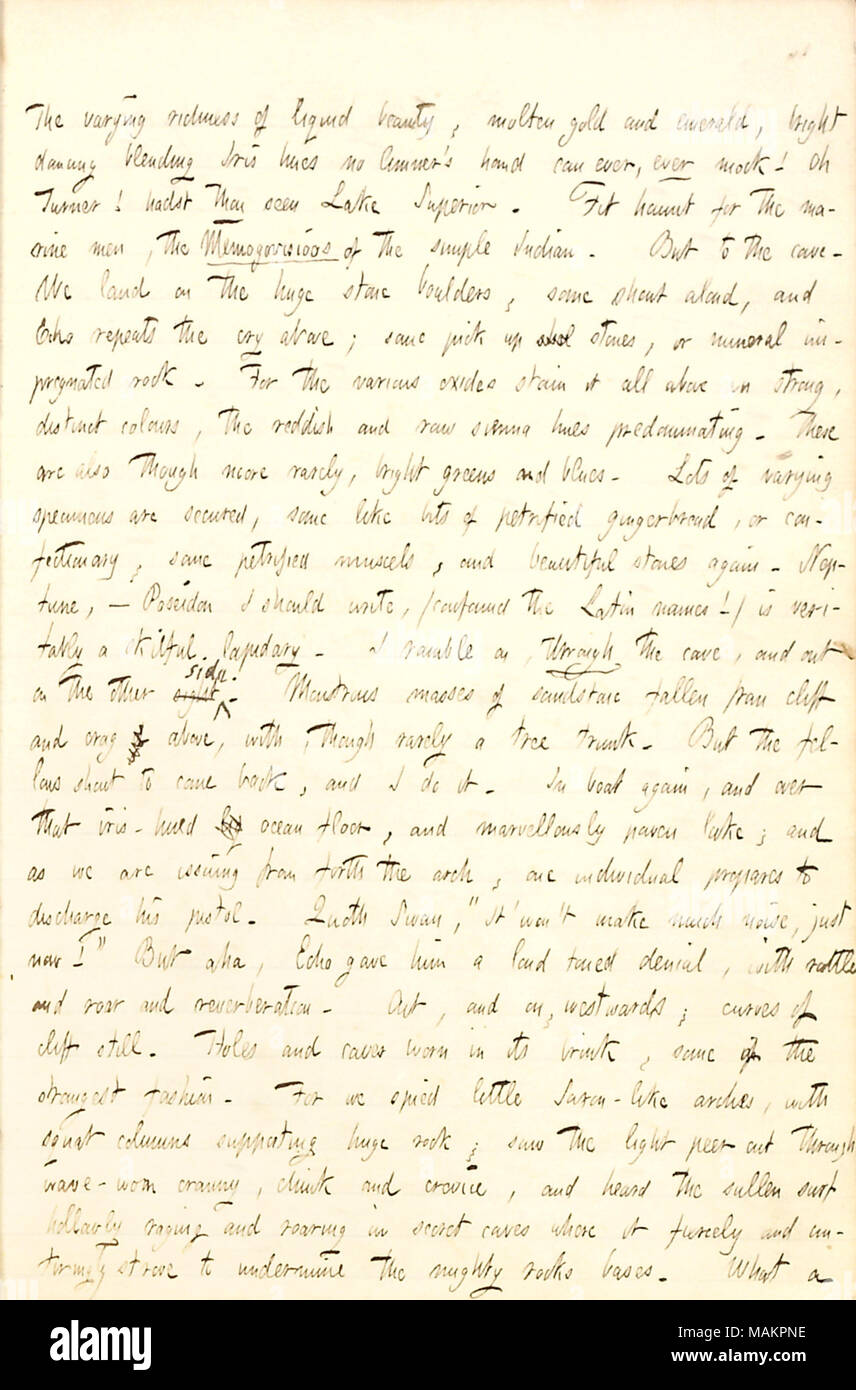 The varying richness of liquid beauty, molten gold and emerald, bright
dancing blending Iris hues no limner's hand can ever, ever mock! Oh
Turner! hadst thou seen Lake Superior. Fit haunt for the ma-
rine men, the Memogovissioos of the simple Indian. But to the cave.
We land on the huge stone boulders, some shout aloud, and
Echo repeats the cry above; some pick up stones, or mineral im-
pregnated rock. For the various oxides stain it all above in strong,
distinct colours, the reddish and raw sienna hues predominating. These
are also though more rarely, bright greens and blues. Lots of varying
specimens are secured, some like bits of petrified gingerbread, or con-
fectionary, some petrified muscels, and beautiful stones again. Nep-
tune, — Poseidon I should write, (confound the Latin names!) is veri-
tably a skilful lapidary. I ramble on, through the cave, and out
on the other side. Monstrous masses of sandstone fallen from cliff
and crag above, with, though rarely a tree trunk. But the fel-
lows shout to come back, and I do it. In boat again, and over
that iris-hued ocean floor, and marvellously paven lake; and
as we are issuing from forth the arch, one individual prepares to
discharge his pistol. Quoth Swan, "It won't make much noise, just
now!" But aha, Echo gave him a loud toned denial, with rattle
and roar and reverberation. Out, and on, westwards; curves of
cliff still. Holes and caves worn in its brink, some of the
strangest fashion. For we spied little Saxon-like arches, with
squat columns supporting huge rock; saw the light peer out through
wave-worn cranny, chink and crevice, and heard the sullen surf
hollowly raging and roaring in secret caves where it fiercely and un-
tiringly strove to undermine the mighty rocks bases. What a
alamy
Image ID: MAKPNE
www.alamy.com